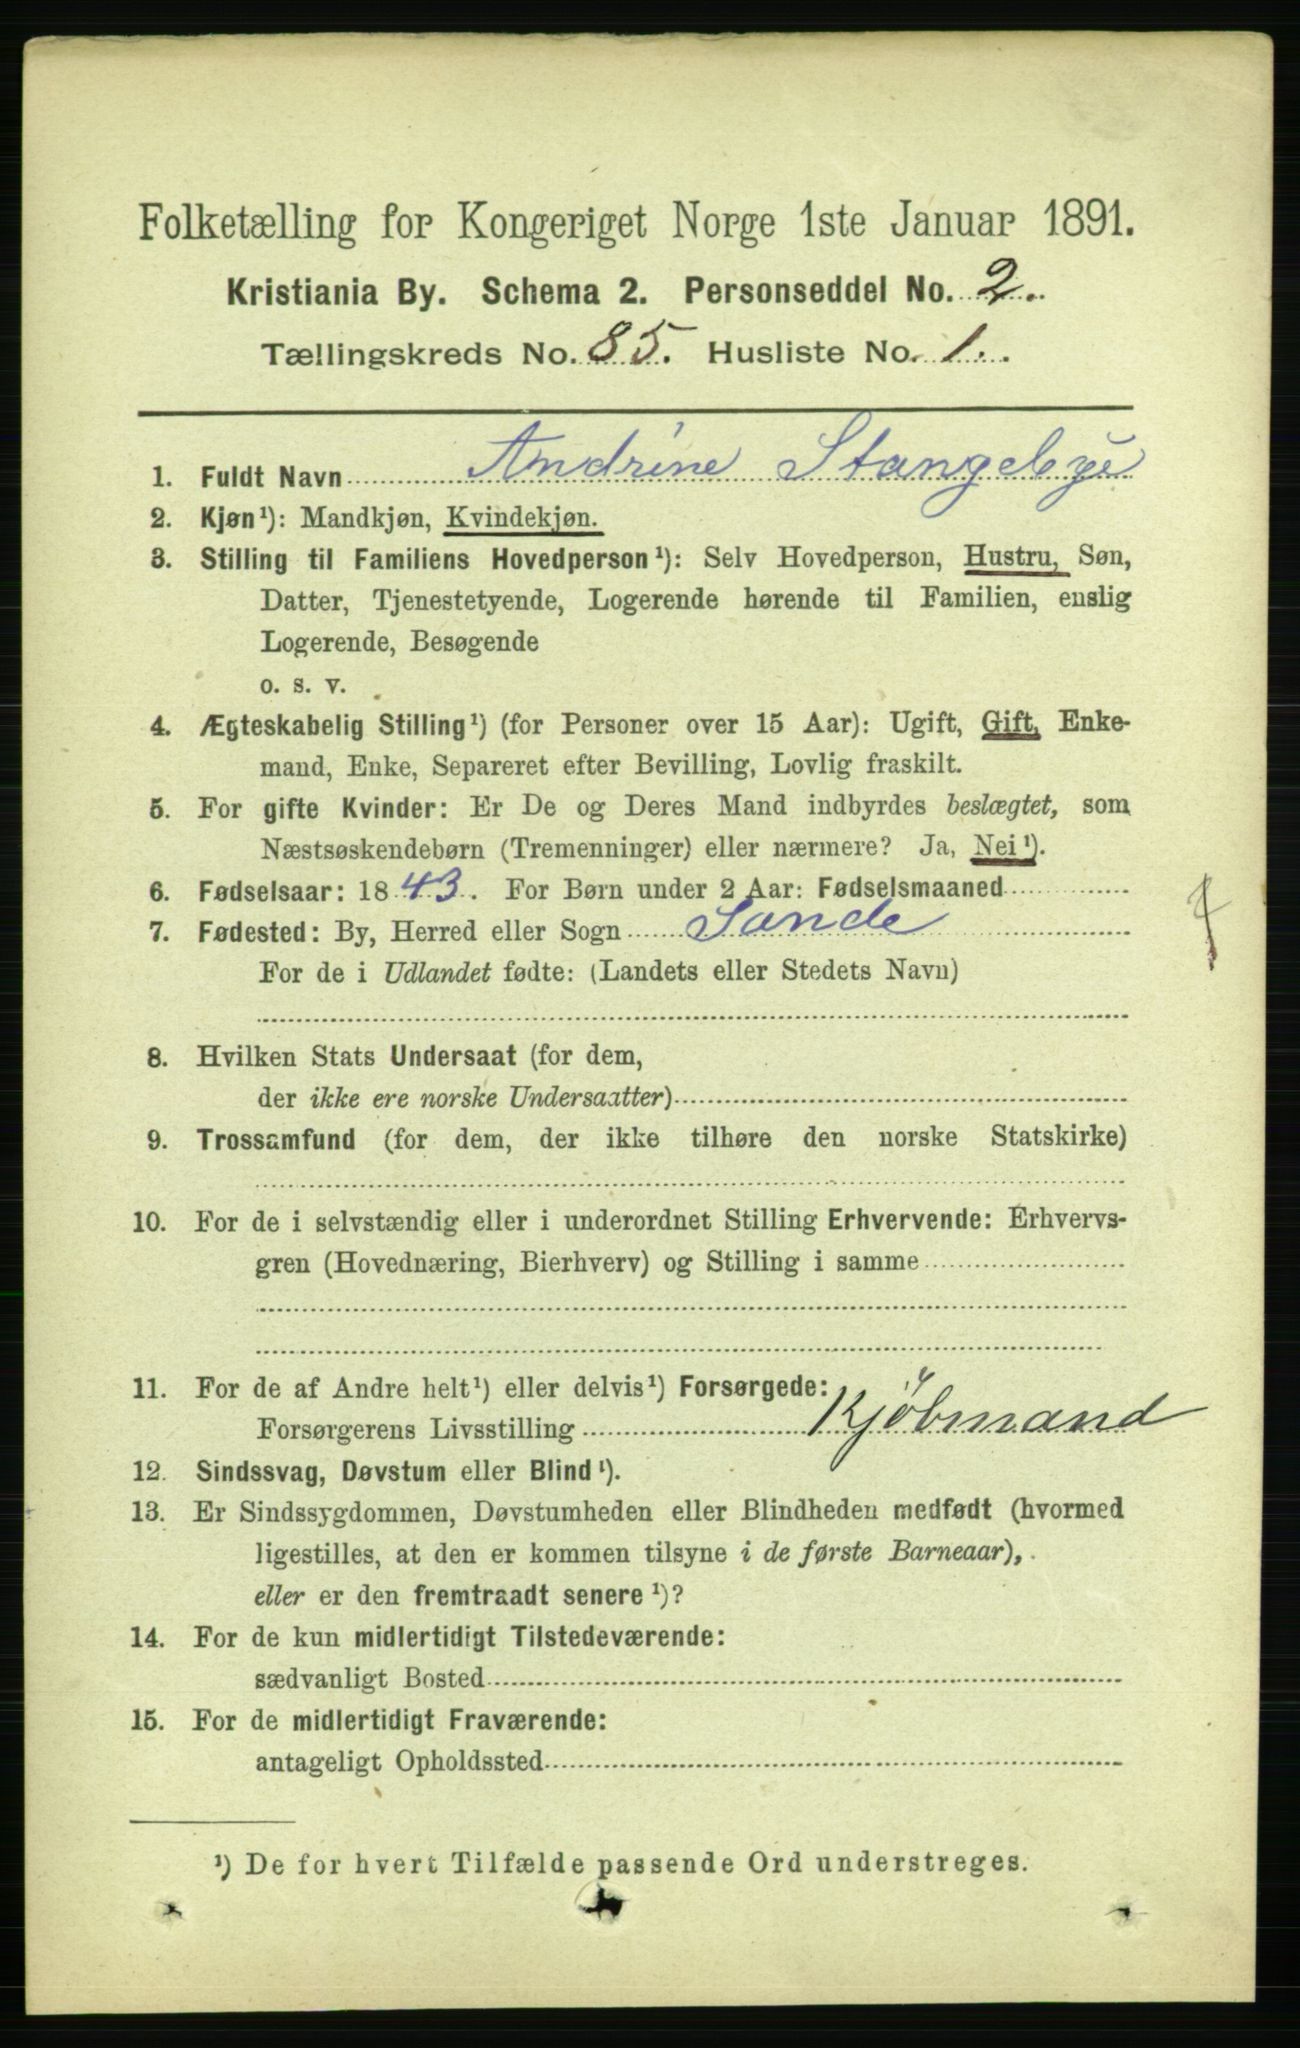 Folketælling for Kongeriget Norge 1ste Januar 1891.
Kristiania By. Schema 2. Personseddel No. 2.
Tællingskreds No. 85. Husliste No. 1.
1. Fuldt Navn Andrine Stangebye
2. Kjøn¹): Mandkjøn, Kvindekjøn.
3. Stilling til Familiens Hovedperson¹): Selv Hovedperson, Hustru, Søn,
Datter, Tjenestetyende, Logerende hørende til Familien, enslig
Logerende, Besøgende
o. s. v.
4. Ægteskabelig Stilling¹) (for Personer over 15 Aar): Ugift, Gift, Enke-
mand, Enke, Separeret efter Bevilling, Lovlig fraskilt.
5. For gifte Kvinder: Er De og Deres Mand indbyrdes beslægtet, som
Næstsøskendebørn (Tremenninger) eller nærmere? Ja, Nei¹).
6. Fødselsaar: 1843. For Børn under 2 Aar: Fødselsmaaned
7. Fødested: By, Herred eller Sogn Sande
For de i Udlandet fødte: (Landets eller Stedets Navn)
8. Hvilken Stats Undersaat (for dem,
der ikke ere norske Undersaatter)
9. Trossamfund (for dem, der ikke tilhøre den norske Statskirke)
10. For de i selvstændig eller i underordnet Stilling Erhvervende: Erhvervs-
gren (Hovednæring, Bierhverv) og Stilling i samme
11. For de af Andre helt¹) eller delvis¹) Forsørgede:
Forsørgerens Livsstilling Kjöbmand
12. Sindssvag, Døvstum eller Blind¹).
13. Er Sindssygdommen, Døvstumheden eller Blindheden medfødt (hvormed
ligestilles, at den er kommen tilsyne i de første Barneaar),
eller er den fremtraadt senere¹)?
14. For de kun midlertidigt Tilstedeværende:
sædvanligt Bosted
15. For de midlertidigt Fraværende:
antageligt Opholdssted
¹) De for hvert Tilfælde passende Ord understreges.